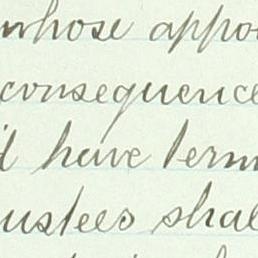 whose appo
consequence
d have term
ustees shal